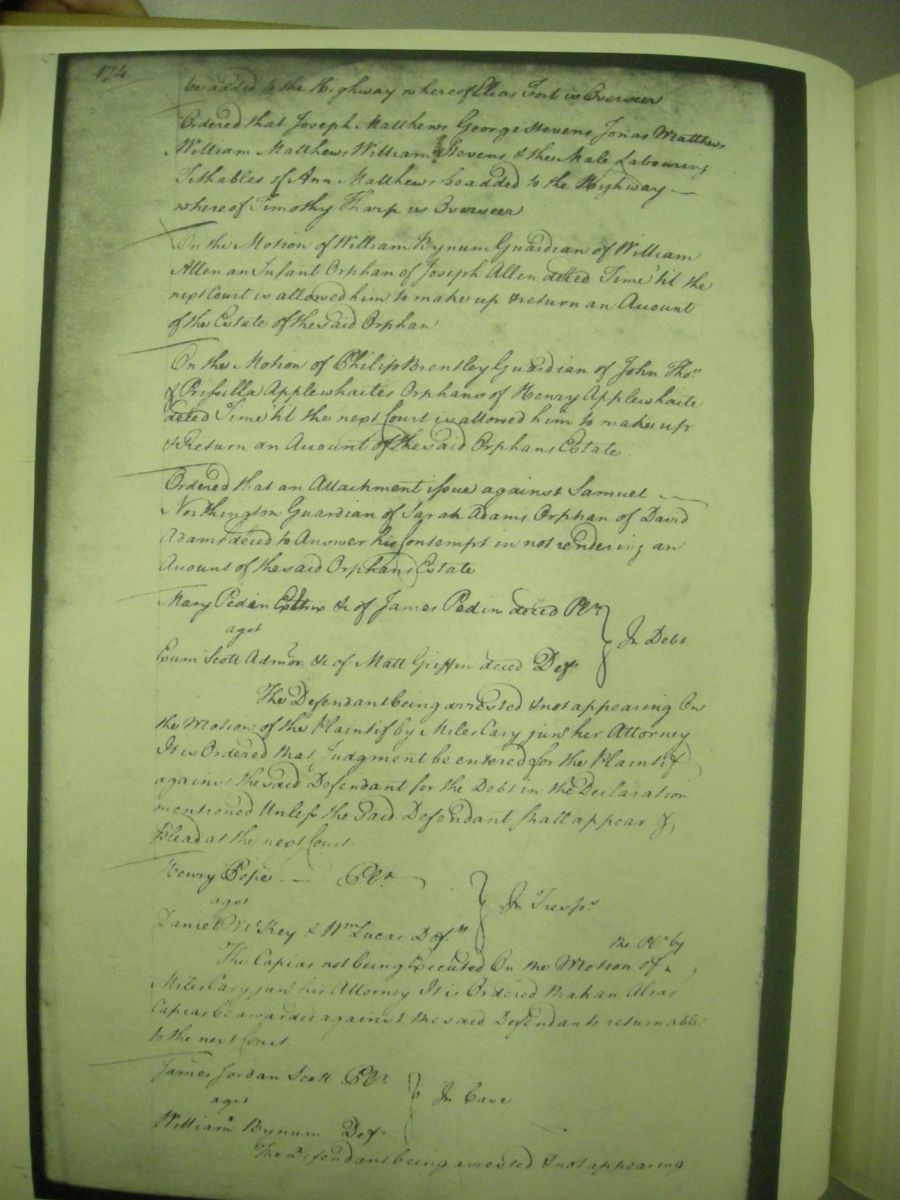 174
be added to the Highway whereof Elias Fort is Overseer
Ordered that Joseph Matthews George Stevens Jonas Matthews
William Matthews William Stevens & the Male Labouring
Tithables of Ann Matthews be added to the Highway
whereof Timothy Tharp is Overseer
On the Motion of William Bynum Guardian of William
Allen an Infant Orphan of Joseph Allen deced Time til the
next Court is allowed him to make up & return an Account
of the Estate of the said Orphan
On the Motion of Philip Brantley Guardian of John Thos
& Prissilla Applewhaites Orphans of Henry Applewhaite
deced Time til the next Court is allowed him to make up
& Return an Account of the said Orphans Estate
Ordered that an Attachment issue against Samuel
Northington Guardian of Sarah Adams Orphan of David
Adams deced to Answer his Contempt in not rendering an
Account of the said Orphans Estate
Mary Pedin Extrx &c of James Pedin deced Plt
agst
In Debt
Exum Scott Admor &c of Matt Griffin deced Deft
The Defendant being arrested & not appearing On
the Motion of the Plaintif by Miles Cary junr her Attorney
It is Ordered that Judgment be entered for the Plaintif
against the said Defendant for the Debt in the Declaration
mentioned Unless the said Defendant shall appear &
plead at the next Court
Henry Pope Plt
agst
In Tresps
Daniel & Wm Lucas Defts
the Plt by
The Capias not being Executed On the Motion of
Miles Cary junr his Attorney It is Ordered that an Alias
Capias be awarded against the said Defendants returnable
to the next Court
James Jordan Scott Plt
agst
In Case
William Bynum Deft
The Defendant being arrested & not appearing